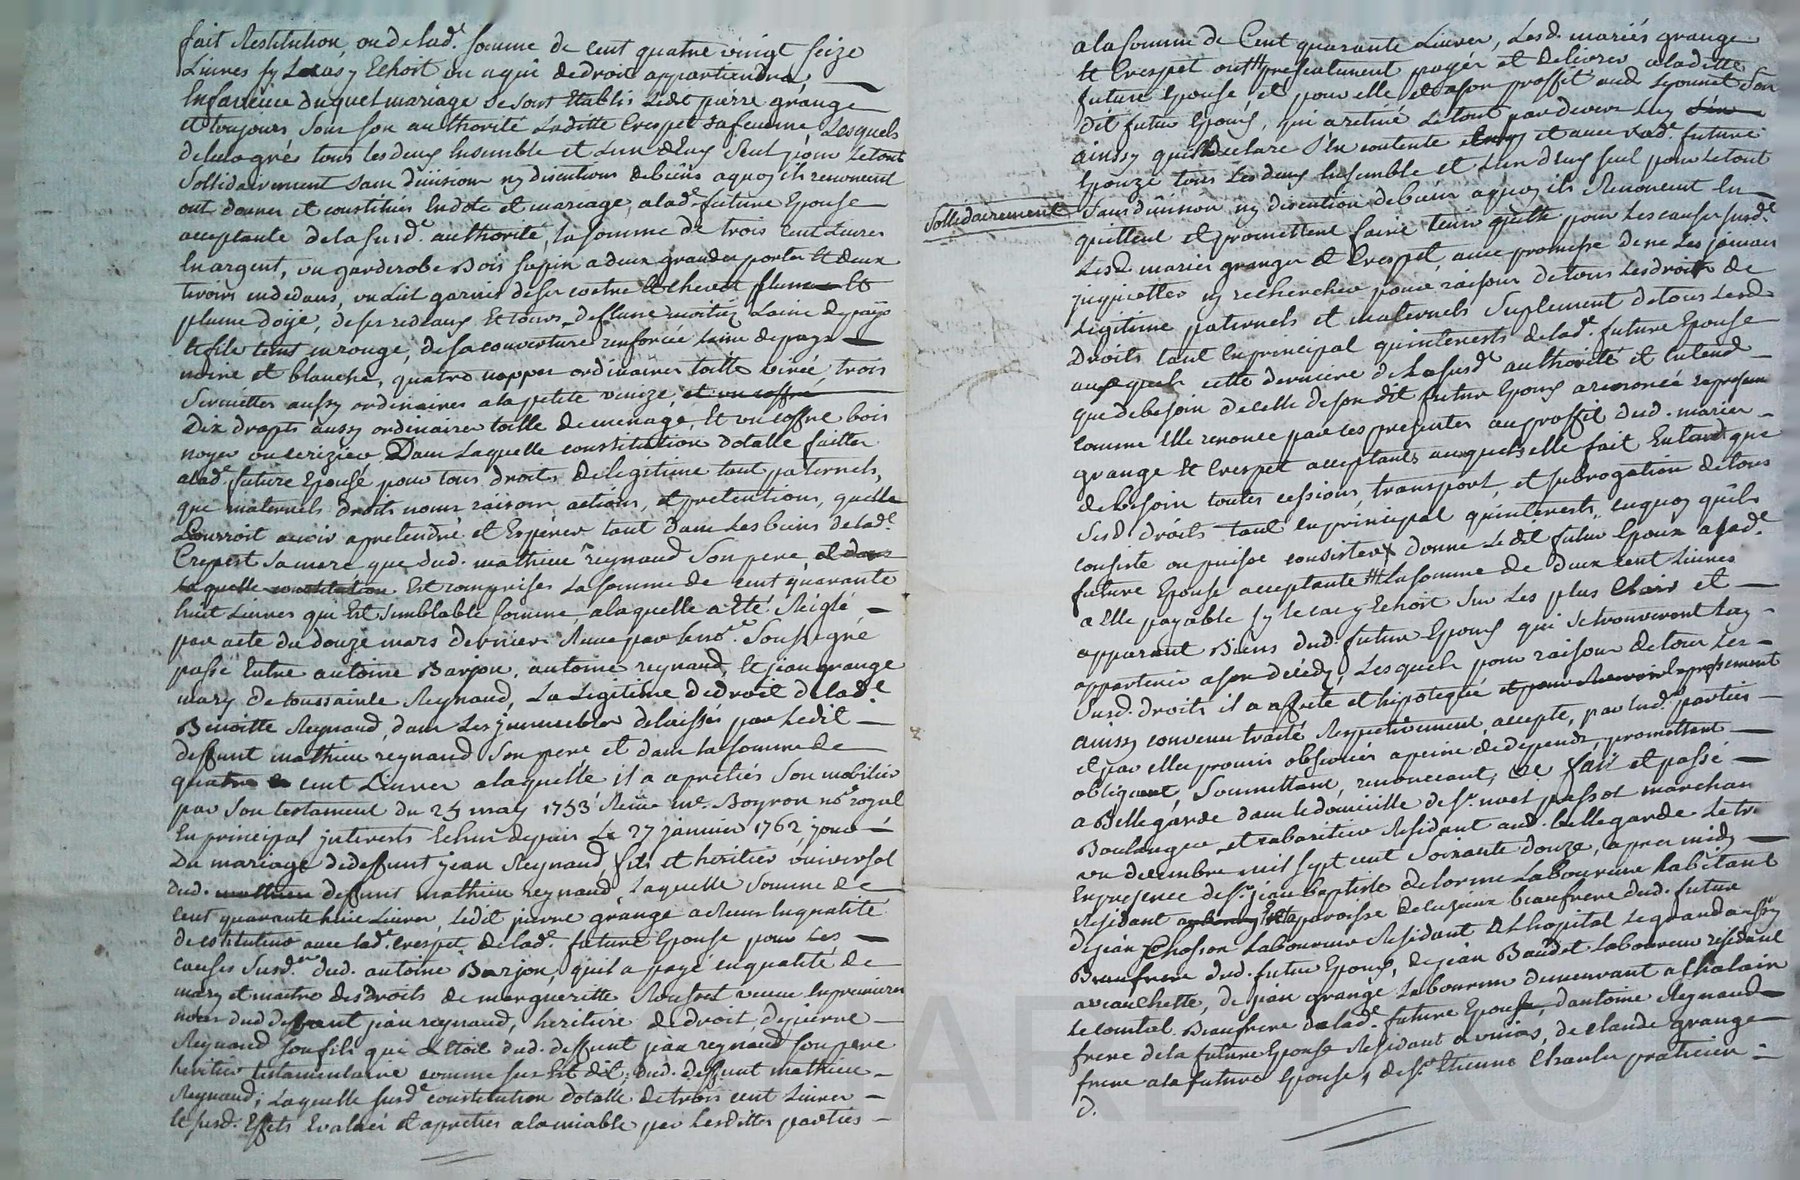 fait Restitution, ou de lad.e somme de cent quatre vingt seize
Livres sy Le cas y Echoit ou a qui de droit appartiendra
En faveur duquel mariage se sont Etablis Ledt pierre grange
et toujours sous son authorité Laditte Crespet sa femme, Lesquels
de leur grés tous les deux Ensemble et L'un d'Eux seul pour Le tout
Sollidairement sans division ny discution de biens a quoy ils renoncent
ont donner et constituer En dot et mariage, a lad.e future Epouse
acceptante de la susd.e authorité, la somme de trois cent Livres
En argent, un garderobe Bois sapin a deux grandes portes Et deux
tiroirs en dedans, un Lit garnis de sa coetre Et chevet plume Et
plume d'oÿe, de ses rideaux Et tours de Laine moitié Laine de païs
Et file teint en rouge, de sa couverture renforcée laine de pays
noire et blanche, quatre nappes ordinaires toille virée, trois
Serviettes aussy ordinaires a la petite venize, et un coffre
Dix draps aussy ordinaires toille de menage, Et un coffre bois
noyer ou cerizier, Dans Laquelle constitution dotalle faitte
a lad.e future Epouse pour tous droits de legitime tant paternels,
que maternels droits noms raisons actions, et pretentions, quelle
Pourroit avoir a pretendre et Esperer tant dans Les biens de lad.e
Crepest sa mere que dud. mathieu reynaud Son pere, et dans
laquelle constitution Est comprises La somme de cent quarante
huit Livres qui Est semblable somme a laquelle a Eté Reiglé
par acte du douze mars dernier Reçue par le no.re Soussigné
passé Entre antoine Barjon, antoine reynaud, Et jean grange
mary de toussainte Reynaud, La Legitime de droit de lad.e
Benoitte Reynaud, dans Les jmmeubles delaissés par Ledit
deffunt mathieu reynaud Son pere et dans la somme de
quatre cent Livres a laquelle il a apretiés Son mobilier
par son testament du 25 may 1753 Reçue me. Boyron no.re royal
En principal jnterests Echus depuis Le 27 janvier 1762, jour
Du mariage de deffunt jean Reynaud, fils et heritier universel
dud. mathieu deffunt mathieu reynaud Laquelle somme de
cent quarante huit Livres, Ledit pierre grange a Reçu En qualité
de constitution avec lad.e crespet de lad.e future Epouse pour Les
causes susd.es dud. antoine Barjon, qui l'a payé En qualité de
mary et maitre des droits de marguerite Rousset veuve En premieres
noces dud deffunt jean reynaud, heritiere de droit, de pierre
Reynaud son fils qui Etoit dud. deffunt jean reynaud son pere
heritier testamentaire comme sus Est dit, dud. deffunt mathieu
Reynaud; Laquelle susd.e constitution dotalle de trois cent Livres
Et susd. Effets Evalués Et apretiés a l'amiable par Lesdittes parties
a la somme de Cent quarante Livres, Lesd. mariés grange
Et Crespet ont presentement payer et delivrer a laditte
future Epouse, et pour elle et a son proffit aud Lyonnet Son
dit futur Epoux, qui a retiré Le tout par devers Luy
ainssy quil declare s'en contente et avec lad.e future
Epouze tous Les deux Ensemble et L'un d'Eux seul pour Le tout
Sollidairement Sans division ny discution de bien a quoy ils Renoncent En
quittent et promettent faire tenir quitte pour Les causes susd.es
Lesd. mariés grange et Crespet, avec promesse de ne Les jamais
jnquietter ny rechercher pour raison de tous Les droits de
Legitime paternels et maternels Suplement de tous Lesd.
Droits tant En principal qu'interests de lad.e future Epouse
ausquels cette derniere de la susd.e authorité et Entend
que de besoin de celle de son dit futur Epoux a renoncé
comme Elle renonce par ces presentes au proffit dud. mariés
grange Et Crespet acceptants auxquels elle fait En tant que
de besoin toutes cessions, transport, et subrogation de tous
Sesd. droits tant En principal qu'interests, en quoy qu'ils
consiste ou puisse consister donne Le dit futur Epoux a lad.e
future Epouse acceptante La somme de deux cent Livres
a Elle payable sy le cas y Echoit Sur Les plus Clairs et
apparant Biens dud. futur Epoux qui se trouveront Luy
appartenir a son décéds, Lesquels pour raison de tous Les
Susd. droits il a affecté et hipotequé
ainssy convenu traité Respectivement accepté, par lesd. parties
et par elles promis observer a peine de depends promettant
obligeant, Soumettant, renonceant, &c fait et passé
a Bellegarde dans le domicille de sr. marchan
Boulanger et cabaretier Residant aud. bellegarde Le tre
un decembre mil sept cent soixante douze, apres midy
En presence de sr. jean baptiste delorme Laboureur habitant
Residant paroisse de cuzieux beaufrere dud. futur
de jean Laboureur Residant a L'hopital Le grand aussy
Beaufrere dud. futur Epoux, de jean Baudet Laboureur residant
a viauchette, de jean grange Laboureur demeurant a Chalain
Le comtal Beaufrere de lad.e future Epouse, d'antoine Reynaud
frere de la future Epouse Residant a , de claude grange
frere a la future Epouse, de sr. Etienne Charles praticien
d.